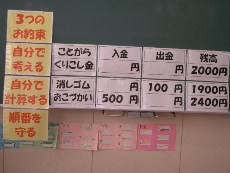 3つの
お約束
自分で
考える
自分で
計算する
順番を
守る
ことがら 入金 出金 残高
くりこし金 円 円 2000円
消しゴム 円 100 円 1900円
おこづかい 500 円 円 2400円